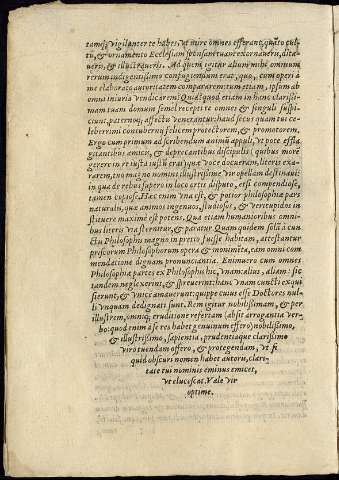 tamq; vigilanter te habes, vt mire omnes efferant, quāto cul-
tu, & ornamento Ecclesiam sponsam tuam exornaueris, dita-
ueris, & illustraueris. Ad quem igitur alium mihi omnium
rerum indigentissimo confugiendum erat, quo, cum operi à
me elaborato autoritatem compararem: tum etiam, ipsum ab
omni iniuria vendicarem? Quàt quod etiam in hanc clarissi-
mam tuam domum semel recepti te omnes & singuli suspi-
ciunt, paternoq; affectu venerantur: haud secus quam tui ce-
leberrimi contubernij felicem protectorem, & promotorem.
Ergo cum primum ad scribendum animū appuli, vt pote effla-
gitantibus amicis, & deprecantibus discipulis; quibus more
gerere in re iusta iustū erat; quæ voce docueram, literis exa-
rarem, tuo magno nomini illustrissime Vir opellam destinaui:
in qua de rebus supero in loco ortis disputo, etsi compendiose,
tamen copiose. Hæc enim vna est, & potior philosophiæ pars
naturalis, quæ animos ingenuos, studiosos, & veri cupidos in-
stituere maxime est potens. Qua etiam humanioribus omni-
bus literis via sternitur, & paratur. Quam quidem solā à cun-
ctis Philosophis magno in pretio fuisse habitam, attestantur
priscorum Philosophorum opera & monimēta, eam omni com
mendatione dignam pronuncantia. Enimuero cum omnes
Philosophiæ partes ex Philosophis hic, vnam: alius, aliam: se-
tandem neglexerint, & spreuerint: hanc vnam cuncti exqui-
sierunt, & vnice amauerunt: suppe cuius esse Doctores nul-
li vnquam dedignati sunt. Rem igitur nobilissimam, & per
illustrem, omniq; eruditione refertam (absit arrogantia ver-
bo: quod enim à se res habet genuinum effero) nobilissimo,
& illustrissimo, sapientia, prudentiaque clarissimo
viro tuendam offero, & protegendam, vt si
quid obscuri nomen habet autoris, clari-
tate tui nominis eminus emicet,
vt elucescat. Vale Vir
optime.